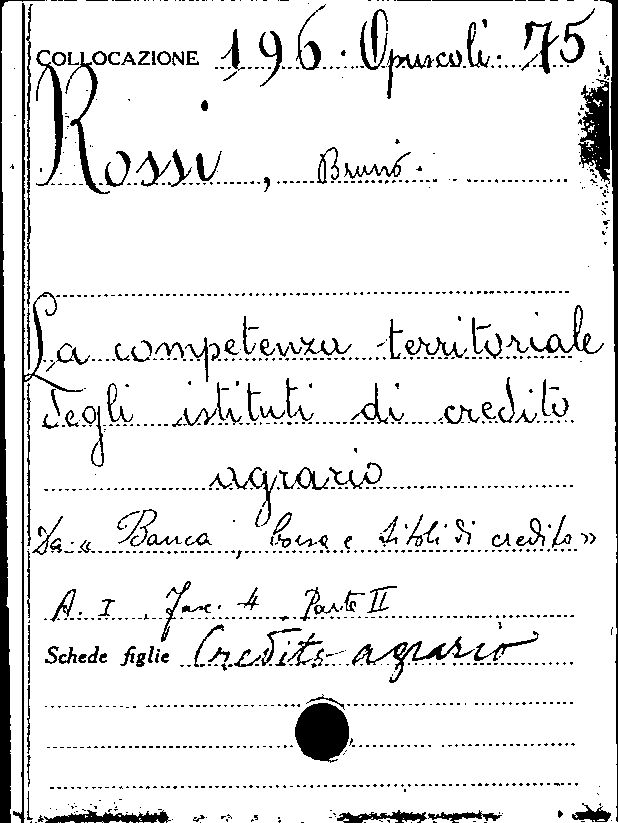 COLLOCAZIONE 196. Opuscoli. 75
Rossi, Bruno.
La competenza territoriale
degli istituti di credito
agrario
Da « Banca, borsa e titoli di credito »
A. I, Fasc. 4, Parte II
Schede figlie Credito agrario